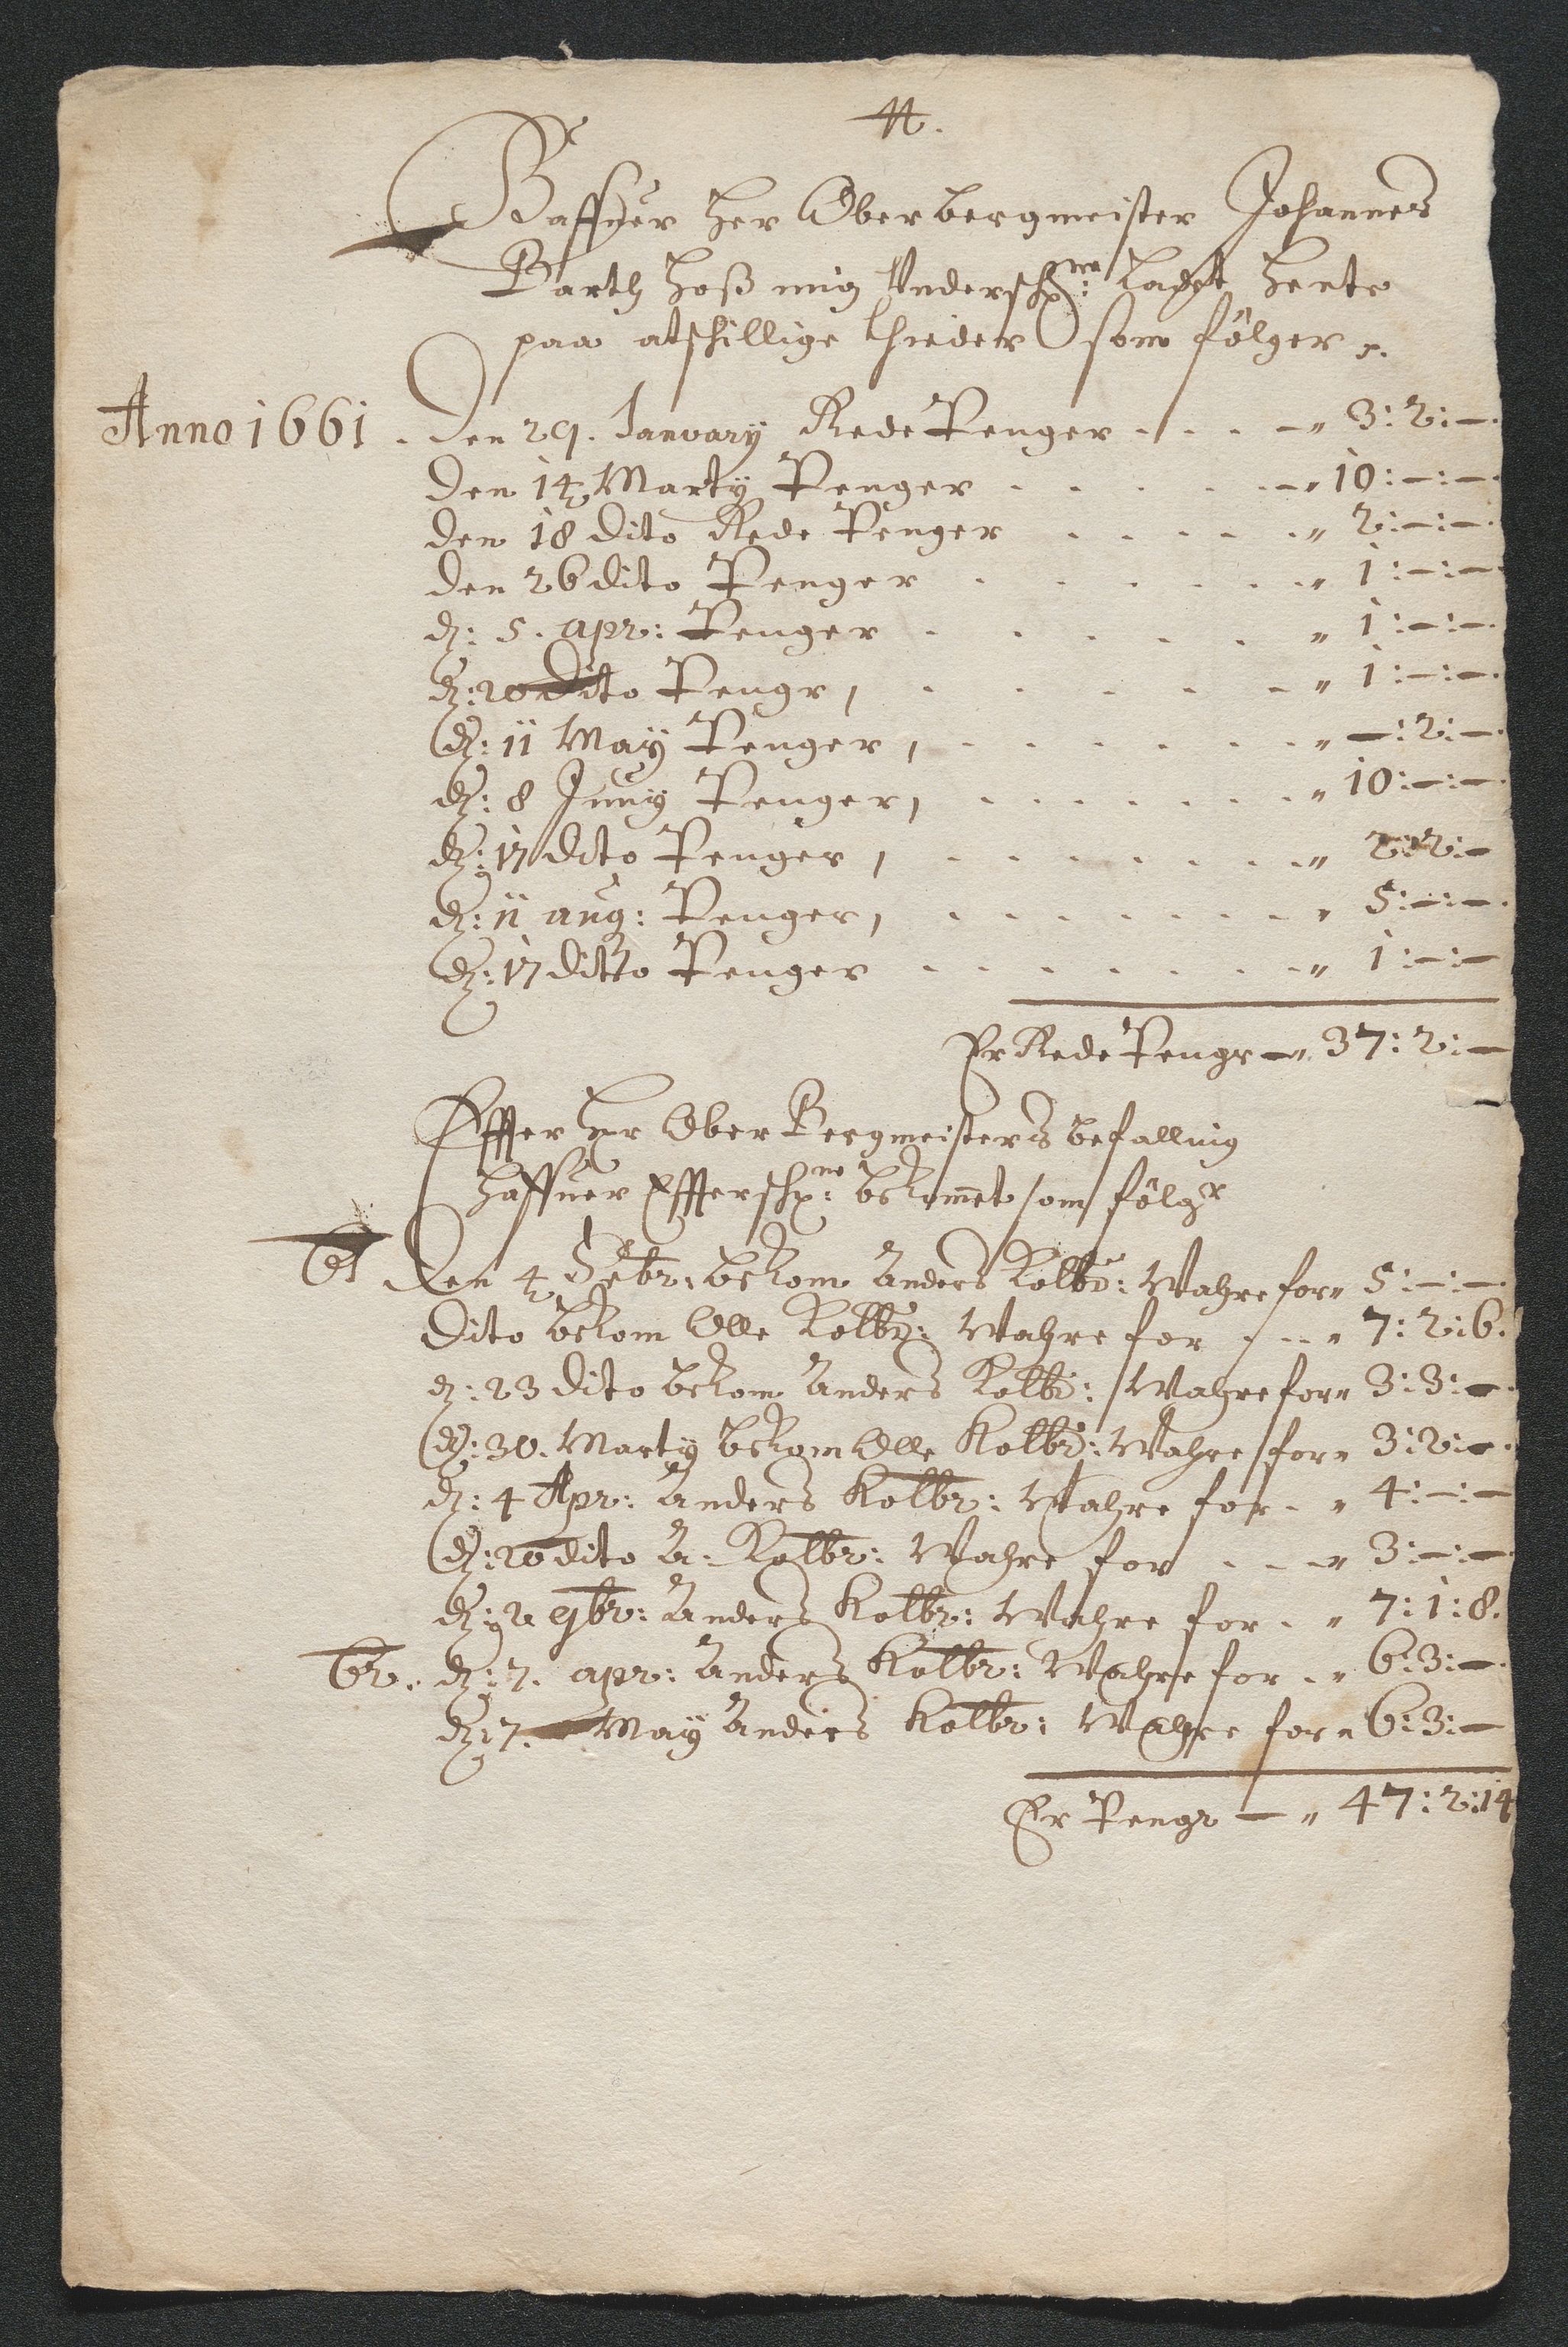 A.
Haffuer Her Oberbergmeister Johannes
Barth hoß mig Underschr:ne ladet hente
paa atschillige thieder som fölger
Anno 1661. Den 29. January Rede Penger . . . " 3:2:—.
Den 14 Marty Penger . . . . . " 10:—:—.
den 18 dito Rede Penger . . . . . " 2:—:—.
den 26 dito Penger . . . . . " 1:—:—.
d: 5. apr: Penger . . . . . " 1:—:—.
d: 20 dito Pengr, . . . . . " 1:—:—.
d: 11 May Penger, . . . . . " —:2:—.
d: 8 Juny Penger, . . . . . " 10:—:—.
d: 17 dito Penger, . . . . . " 2:2:—
d: 11 aug: Penger, . . . . . " 5:—:—.
d: 17 ditto Penger . . . . . " 1:—:—
Er Rede Pengr — " 37:2:—
Effter Hr Ober Bergmeisters befalling
haffuer Effterschr:ne bekommet som fölgr
61 Den 4 Febr: bekom Anders Kolbr: Wahre for " 5:—:—.
Dito bekom Olle Kolbr: Wahre for . . " 7:2:6.
d: 23 dito bekom Anders Kolbr: Wahre for " 3:3:—.
d: 30. Marty bekom Olle Kolbr: Wahre for " 3:2:—.
d: 4 Apr: Anders Kolbr: Wahre for . " 4:—:—
d: 20 dito A: Kolbr: Wahre for . . " 3:—:—.
d: 2 9br: Anders Kolbr: Wahre for . " 7:1:8.
62. d: 7. apr: Anders Kolbr: Wahre for . " 6:3:—.
d: 7. May Anders Kolbr: Wahre for " 6:3:—
Er Pengr — " 47:2:14